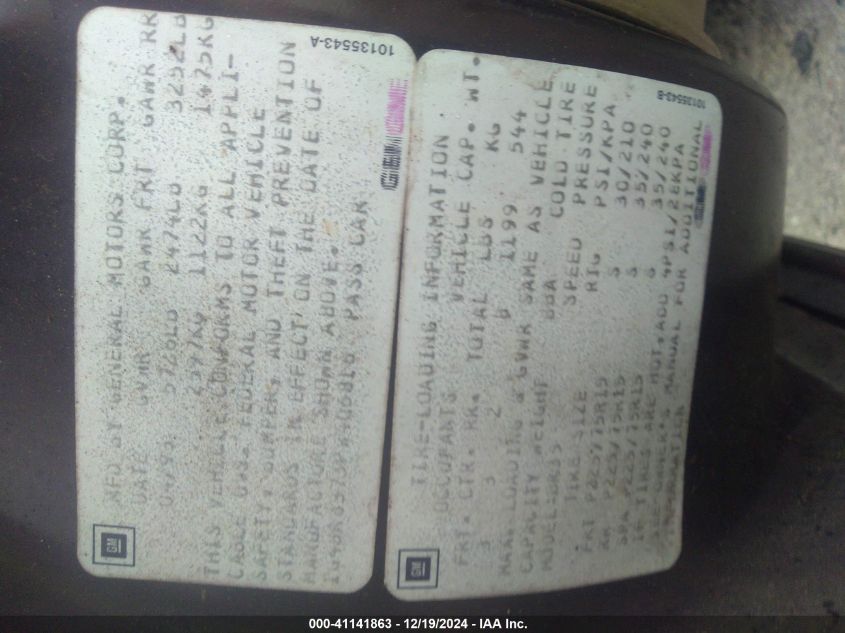 GM
MFD BY GENERAL MOTORS CORP.
DATE GVWR GAWR FRT GAWR RR
04/93 5726LB 2474LB 3252LB
2597KG 1122KG 1475KG
THIS VEHICLE CONFORMS TO ALL APPLI-
CABLE U.S. FEDERAL MOTOR VEHICLE
SAFETY, BUMPER, AND THEFT PREVENTION
STANDARDS IN EFFECT ON THE DATE OF
MANUFACTURE SHOWN ABOVE.
PASS CAR
10135543-A
GM
TIRE-LOADING INFORMATION
OCCUPANTS VEHICLE CAP. WT.
FRT. CTR. RR. TOTAL LBS KG
3 3 2 8 1199 544
MAX. LOADING & GVWR SAME AS VEHICLE
CAPACITY WEIGHT COLD TIRE
TIRE SIZE SPEED PRESSURE
RTG PSI/KPA
FRT P225/75R15 S 30/210
RR P225/75R15 S 35/240
SPA P225/75R15 S 35/240
IF TIRES ARE HOT, ADD 4PSI/28KPA
SEE OWNER'S MANUAL FOR ADDITIONAL
INFORMATION
10135543-B
000-41141863 - 12/19/2024 - IAA Inc.